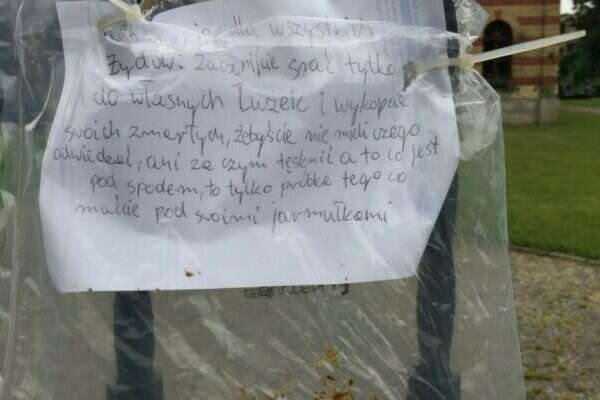 dla wszystkich
Żydów. Zacznijcie srać tylko
do własnych Łużek i wykopcie
swoich zmarłych, żebyście nie mieli czego
odwiedzać, ani za czym tęsknić a to co jest
pod spodem, to tylko próbka tego co
macie pod swoimi jarmułkami